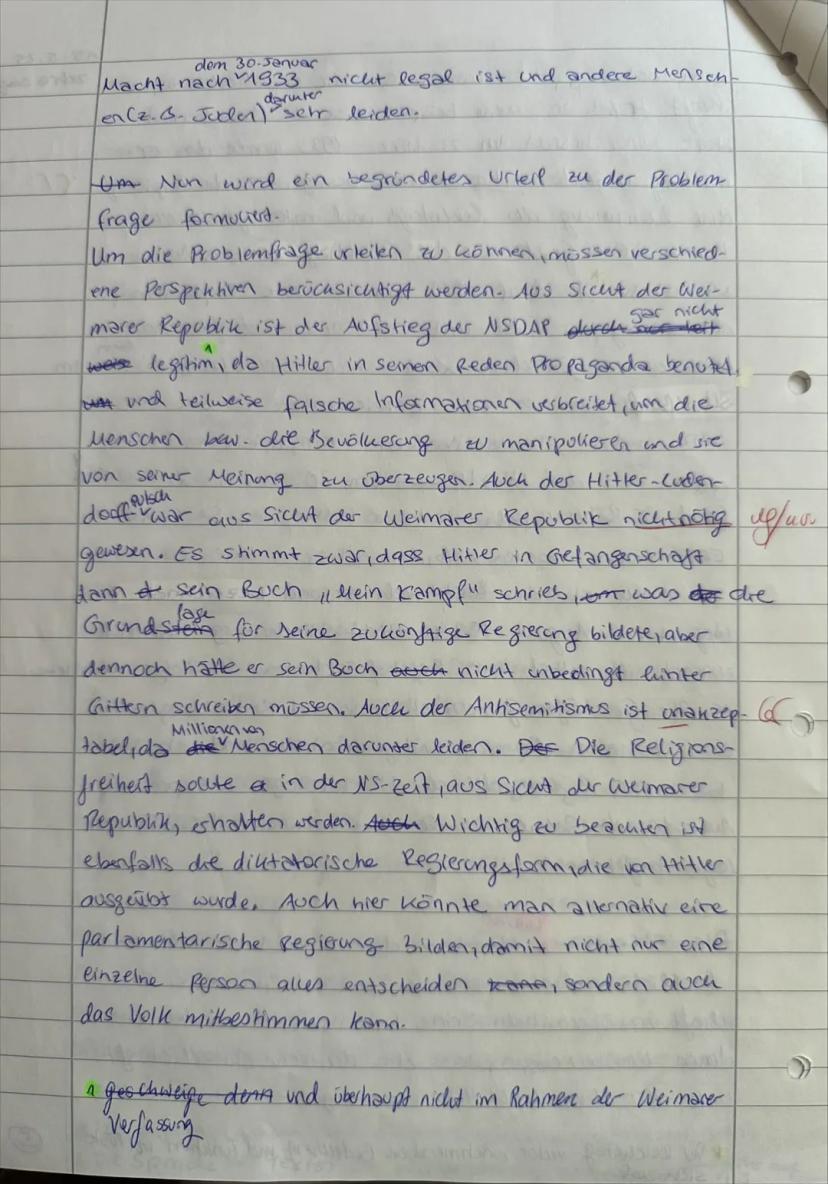 dem 30. Januar
Macht nach 1933 nicht legal ist und andere Mensch-
darunter
en (z.B. Juden) sehr leiden.
Um Nun wird ein begründetes Urteil zu der Problem-
frage formuliert.
Um die Problemfrage urteilen zu können, müssen verschied-
ene Perspektiven berücksichtigt werden. Aus Sicht der Wei-
gar nicht
marer Republik ist der Aufstieg der NSDAP durch
1
legitim, da Hitler in seinen Reden Propaganda benutzt
und teilweise falsche Informationen verbreitet, um die
Menschen bzw. die Bevölkerung zu manipulieren und sie
von seiner Meinung zu überzeugen. Auch der Hitler-Luden-
putsch
dorff war aus Sicht der Weimarer Republik nicht nötig
gewesen. Es stimmt zwar, dass Hitler in Gefangenschaft
dann sein Buch „Mein Kampf" schrieb, um was der die
lage
Grundstein für seine zukünftige Regierung bildete, aber
dennoch hätte er sein Buch auch nicht unbedingt hinter
Gittern schreiben müssen. Auch der Antisemitismus ist unakzep-
Millionen von
tabel, da die Menschen darunter leiden. Der Die Religions-
freiheit sollte in der NS-Zeit, aus Sicht der Weimarer
Republik, erhalten werden. Auch Wichtig zu beachten ist
ebenfalls die diktatorische Regierungsform, die von Hitler
ausgeübt wurde. Auch hier könnte man alternativ eine
parlamentarische Regierung bilden, damit nicht nur eine
einzelne Person alles entscheiden kann, sondern auch
das Volk mitbestimmen kann.
1 geschweige denn und überhaupt nicht im Rahmen der Weimarer
Verfassung